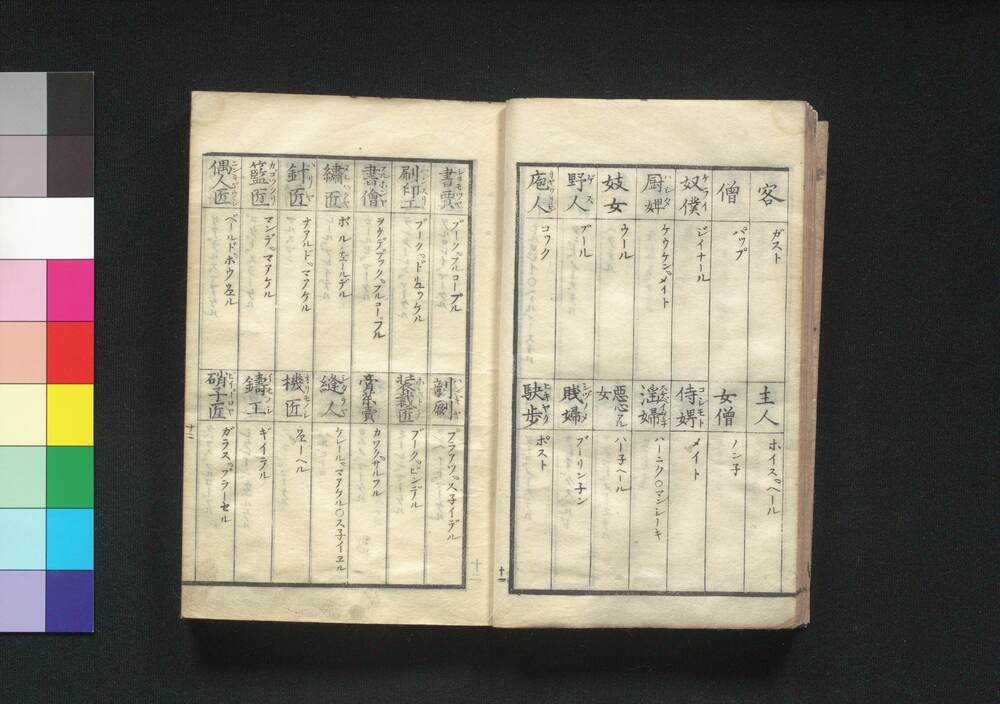 客 ガスト
僧 パップ
奴僕 ケライ ジイナール
厨婢 ハシタ ケウケンメイト
妓女 ウール
野人 ゲス ブール
庖人 コック
主人 ホイスヘール
女僧 ノン子
侍婢 コシモト メイト
淫婦 ハーニク○マンシーキ
惡女 ハー子ヘール
賤婦 ブーリン子ン
駃歩 ポスト
十一
書賣 ブークフルコープル
刷印工 ブークドリュッケル
書儈 ヲウデブックフルコープル
繡匠 ボルヂュールデル
針匠 ナアルドマアケル
籃匠 カゴツクリ マンデマアケル
偶人匠 ペールドホウヱル
剞劂 プラアツス子イデル
裝裁匠 ブークビンデル
膏藥賣 カワクサルフル
縫人 ケレールマアケル○ス子イヱル
機匠 ヱーヘル
鑄工 ギイテル
硝子匠 ガラスブラーセル
十二